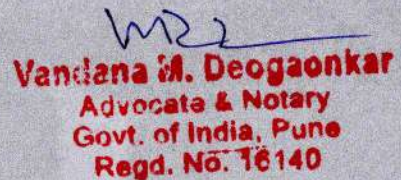 Vandana M. Deogaonkar
Advocate & Notary
Govt. of India, Pune
Regd. No. 16140